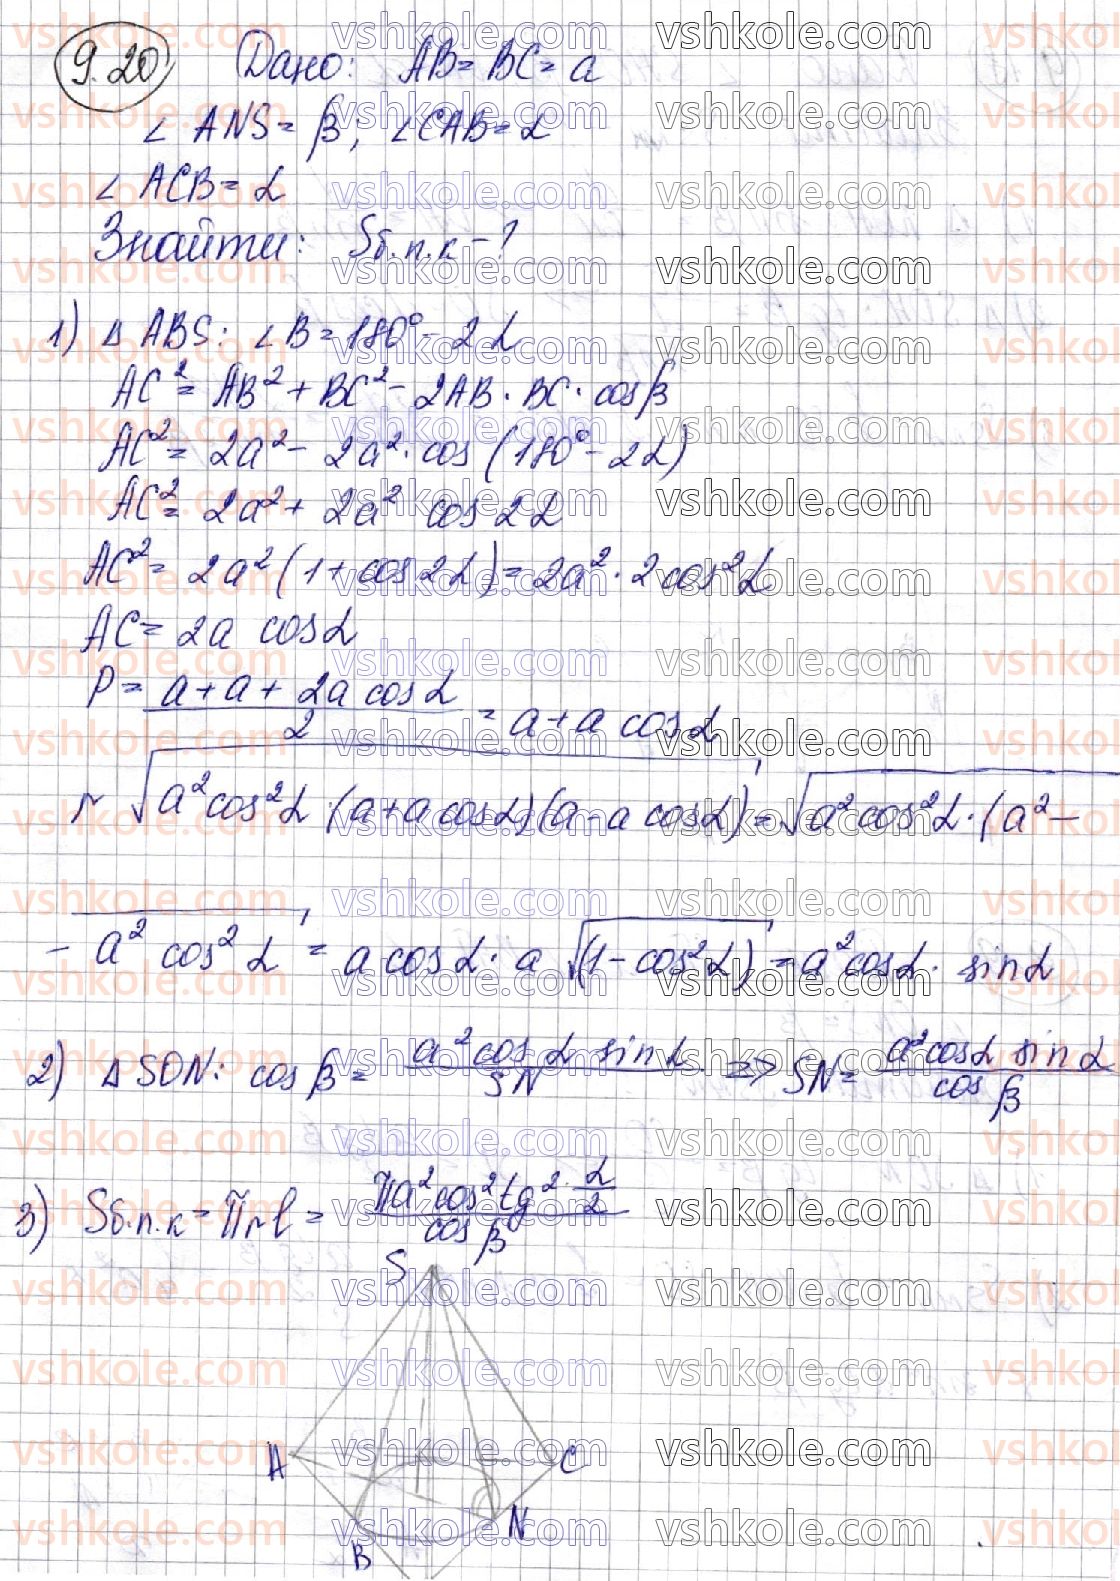 9.20 Дано: AB = BC = a
∠ ANS = β; ∠CAB = α
∠ ACB = α
Знайти: Sб.п.к - ?
1) Δ ABS: ∠B = 180° - 2α
AC² = AB² + BC² - 2AB · BC · cosβ
AC² = 2a² - 2a² · cos (180° - 2α)
AC² = 2a² + 2a² cos 2α
AC² = 2a² (1 + cos 2α) = 2a² · 2 cos²α
AC = 2a cosα
P = (a + a + 2a cosα)/2 = a + a cosα
r √(a² cos²α · (a + a cosα)(a - a cosα)) = √(a² cos²α · (a² -
- a² cos² α) = a cosα · a √(1 - cos²α) = a² cosα · sinα
2) Δ SON: cosβ = (a² cosα sinα)/SN => SN = (a² cosα sinα)/cosβ
3) Sб.п.к = Πrl = (Πa² cos² tg² · α/2)/cosβ
S
A
C
N
B
vshkole.com